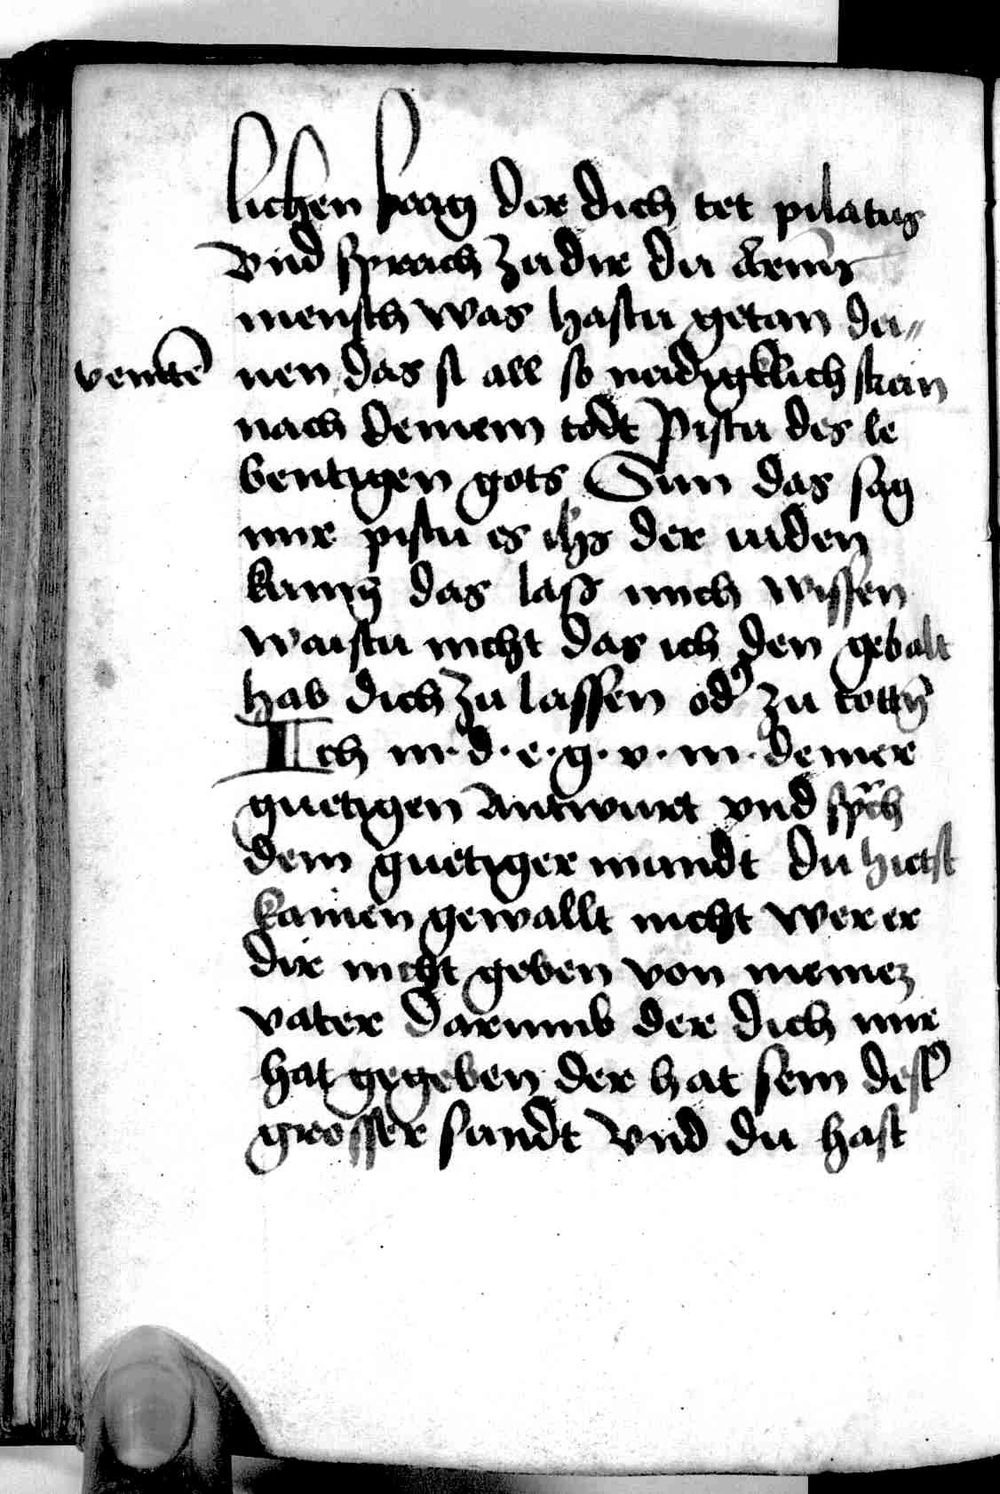 lichen frag der dich tet pilatus
Vnd sprach zu dir du armer
mensch was hastu getan dei〃
nen das si all so neidigklich stein
nach deinem todt Pistu des le
bentigen gots Sun das sag
mir pistu es ihs der iuden
kunig das lass mich wissen
waistu nicht das ich den gebalt
hab dich zu lassen od' zu tottn̄
Ich m·d·e·g·v·m· deiner
guetigen Antwurt vnd sprch
dein guetiger mundt Du hietst
kainen gewallt nicht wer er
dir nicht geben von meinez
vater Darumb der dich mir
hat gegeben der hat sein dest'
grosser sundt Vnd du hast